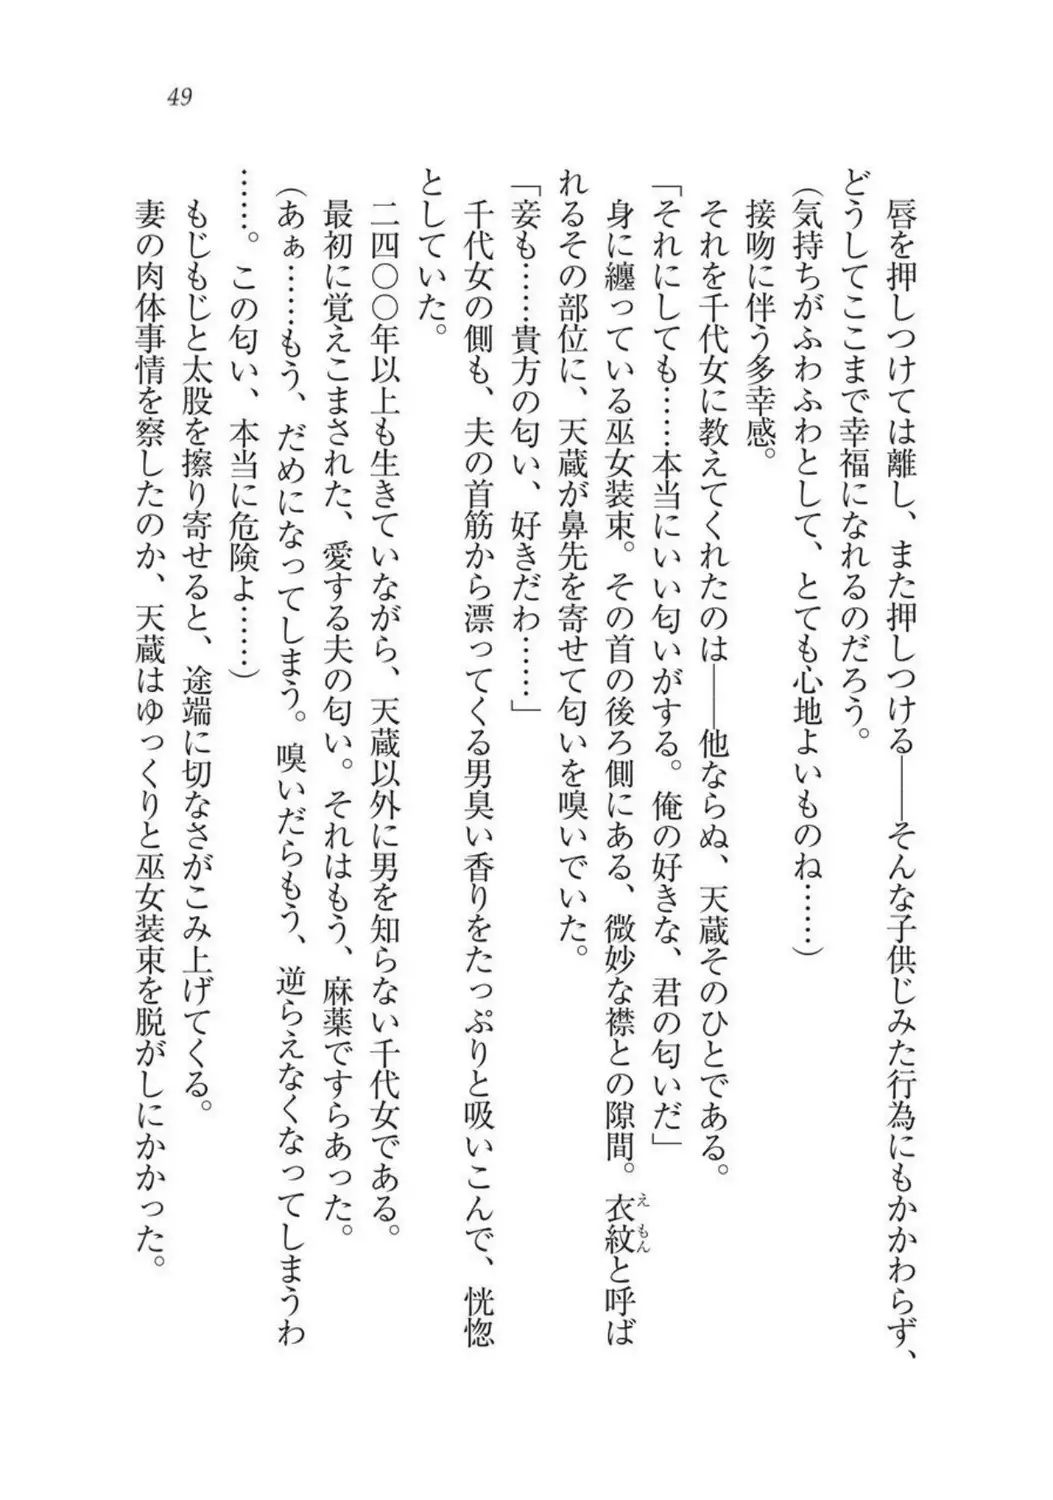 49
唇を押しつけては離し、また押しつける――そんな子供じみた行為にもかかわらず、
どうしてここまで幸福になれるのだろう。
（気持ちがふわふわとして、とても心地よいものね……）
接吻に伴う多幸感。
それを千代女に教えてくれたのは――他ならぬ、天蔵そのひとである。
「それにしても……本当にいい匂いがする。俺の好きな、君の匂いだ」
身に纏っている巫女装束。その首の後ろ側にある、微妙な襟との隙間。衣紋と呼ば
えもん
れるその部位に、天蔵が鼻先を寄せて匂いを嗅いでいた。
「妾も……貴方の匂い、好きだわ……」
千代女の側も、夫の首筋から漂ってくる男臭い香りをたっぷりと吸いこんで、恍惚
としていた。
二四〇〇年以上も生きていながら、天蔵以外に男を知らない千代女である。
最初に覚えこまされた、愛する夫の匂い。それはもう、麻薬ですらあった。
（あぁ……もう、だめになってしまう。嗅いだらもう、逆らえなくなってしまうわ
……。この匂い、本当に危険よ……）
もじもじと太股を擦り寄せると、途端に切なさがこみ上げてくる。
妻の肉体事情を察したのか、天蔵はゆっくりと巫女装束を脱がしにかかった。